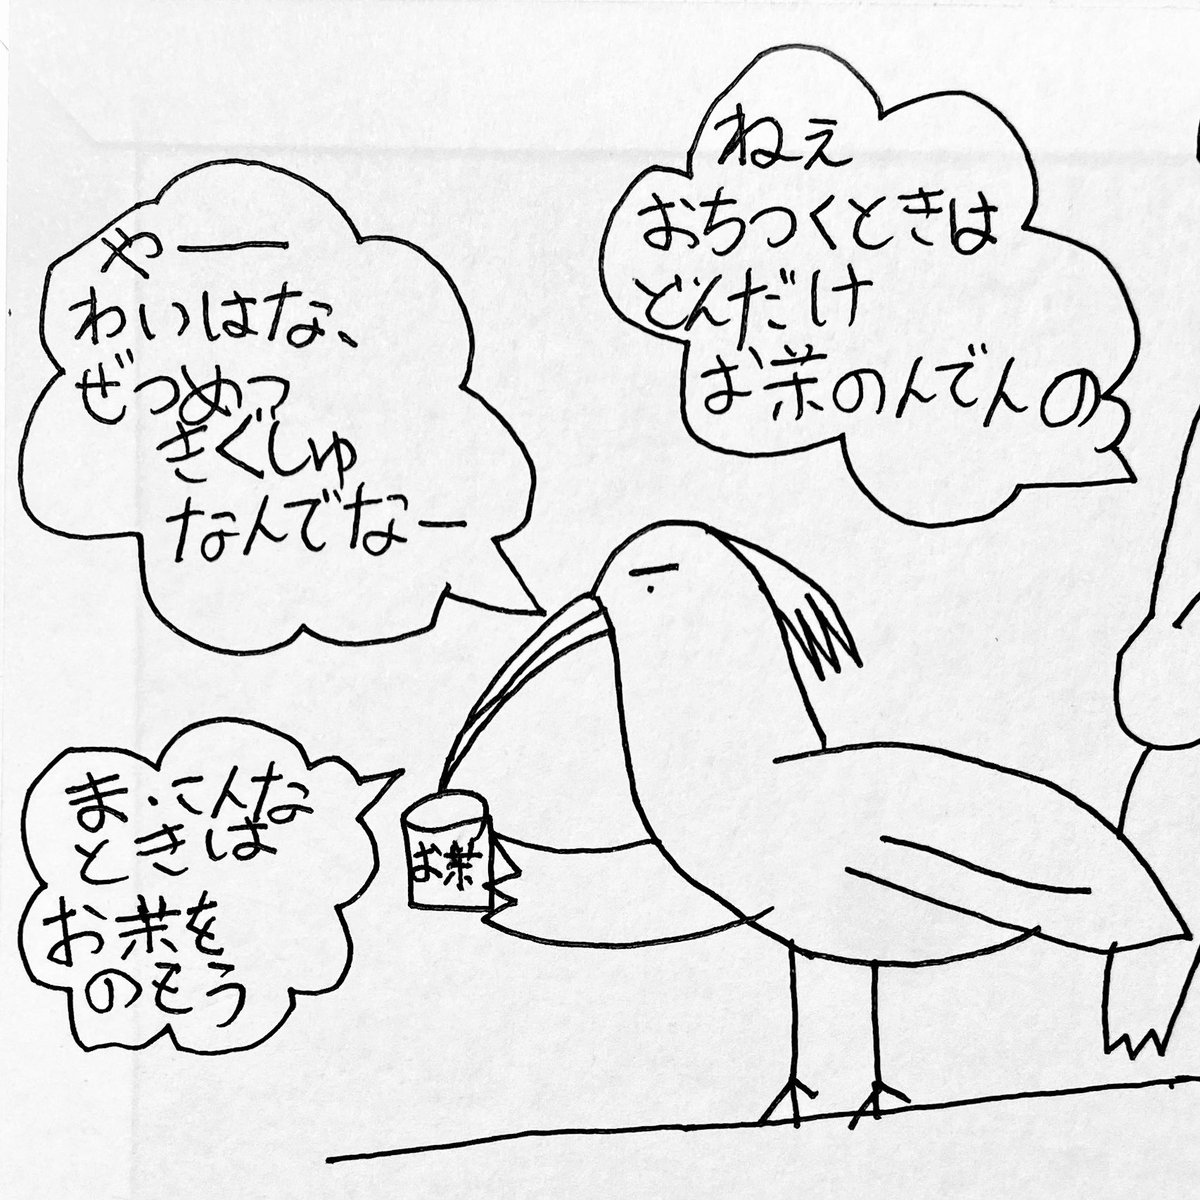 ねぇ
おちつくときは
どんだけ
お茶のんでんの
やーー
わいはな、
ぜつめつ
きぐしゅ
なんでなー
ま、こんな
ときは
お茶を
のもう
お茶